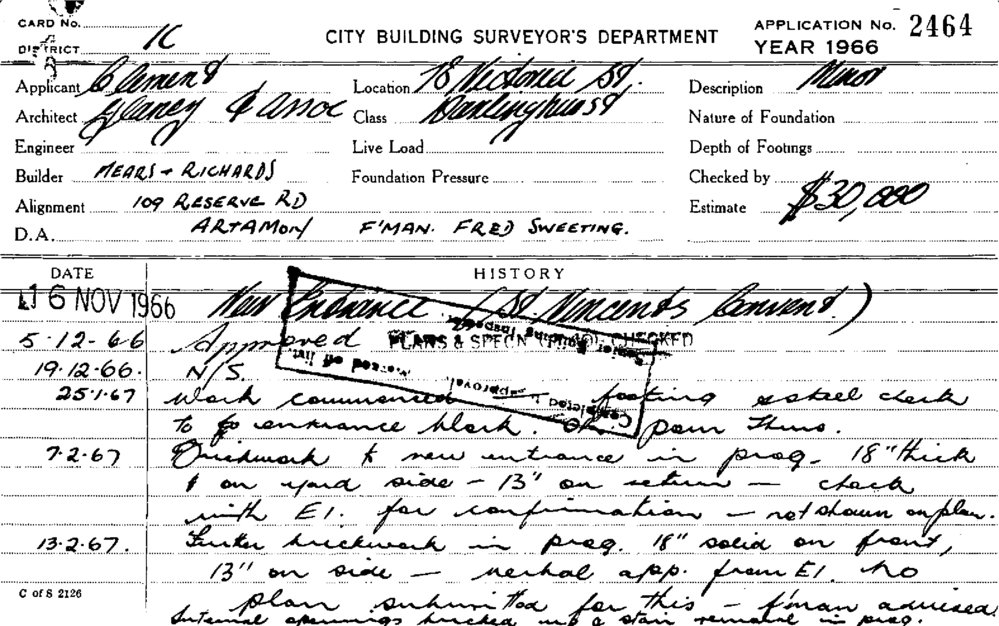 CARD No.
DISTRICT 1C
CITY BUILDING SURVEYOR'S DEPARTMENT
APPLICATION No. 2464
YEAR 1966
Applicant Clement
Location 78 Victoria St.
Description Minor
Architect Glancy & Assoc
Class Darlinghurst
Nature of Foundation
Engineer
Live Load
Depth of Footings
Builder MEARS + RICHARDS
Foundation Pressure
Checked by
Alignment 109 RESERVE RD
Estimate $30,000
D.A. ARTAMON F'MAN. FRED SWEETING.
DATE HISTORY
16 NOV 1966 New Entrance (St. Vincents Convent.)
5.12-66 Approved PLANS & SPECN CHECKED
Senior Building Inspector
19.12.66. N/S.
25.1.67 Work commenced footing & steel check
Completed approval
to entrance block. OK pour Thurs.
7.2.67 Brickwork to new entrance in prog. 18" thick
on yard side - 13" on return - check
with E1. for confirmation - not shown on plan.
13.2.67. Further brickwork in prog. 18" solid on front,
13" on side - verbal app. from E1. No
C of S 2126
plan submitted for this - f'man advised.
Internal openings bricked up & stair removal in prog.